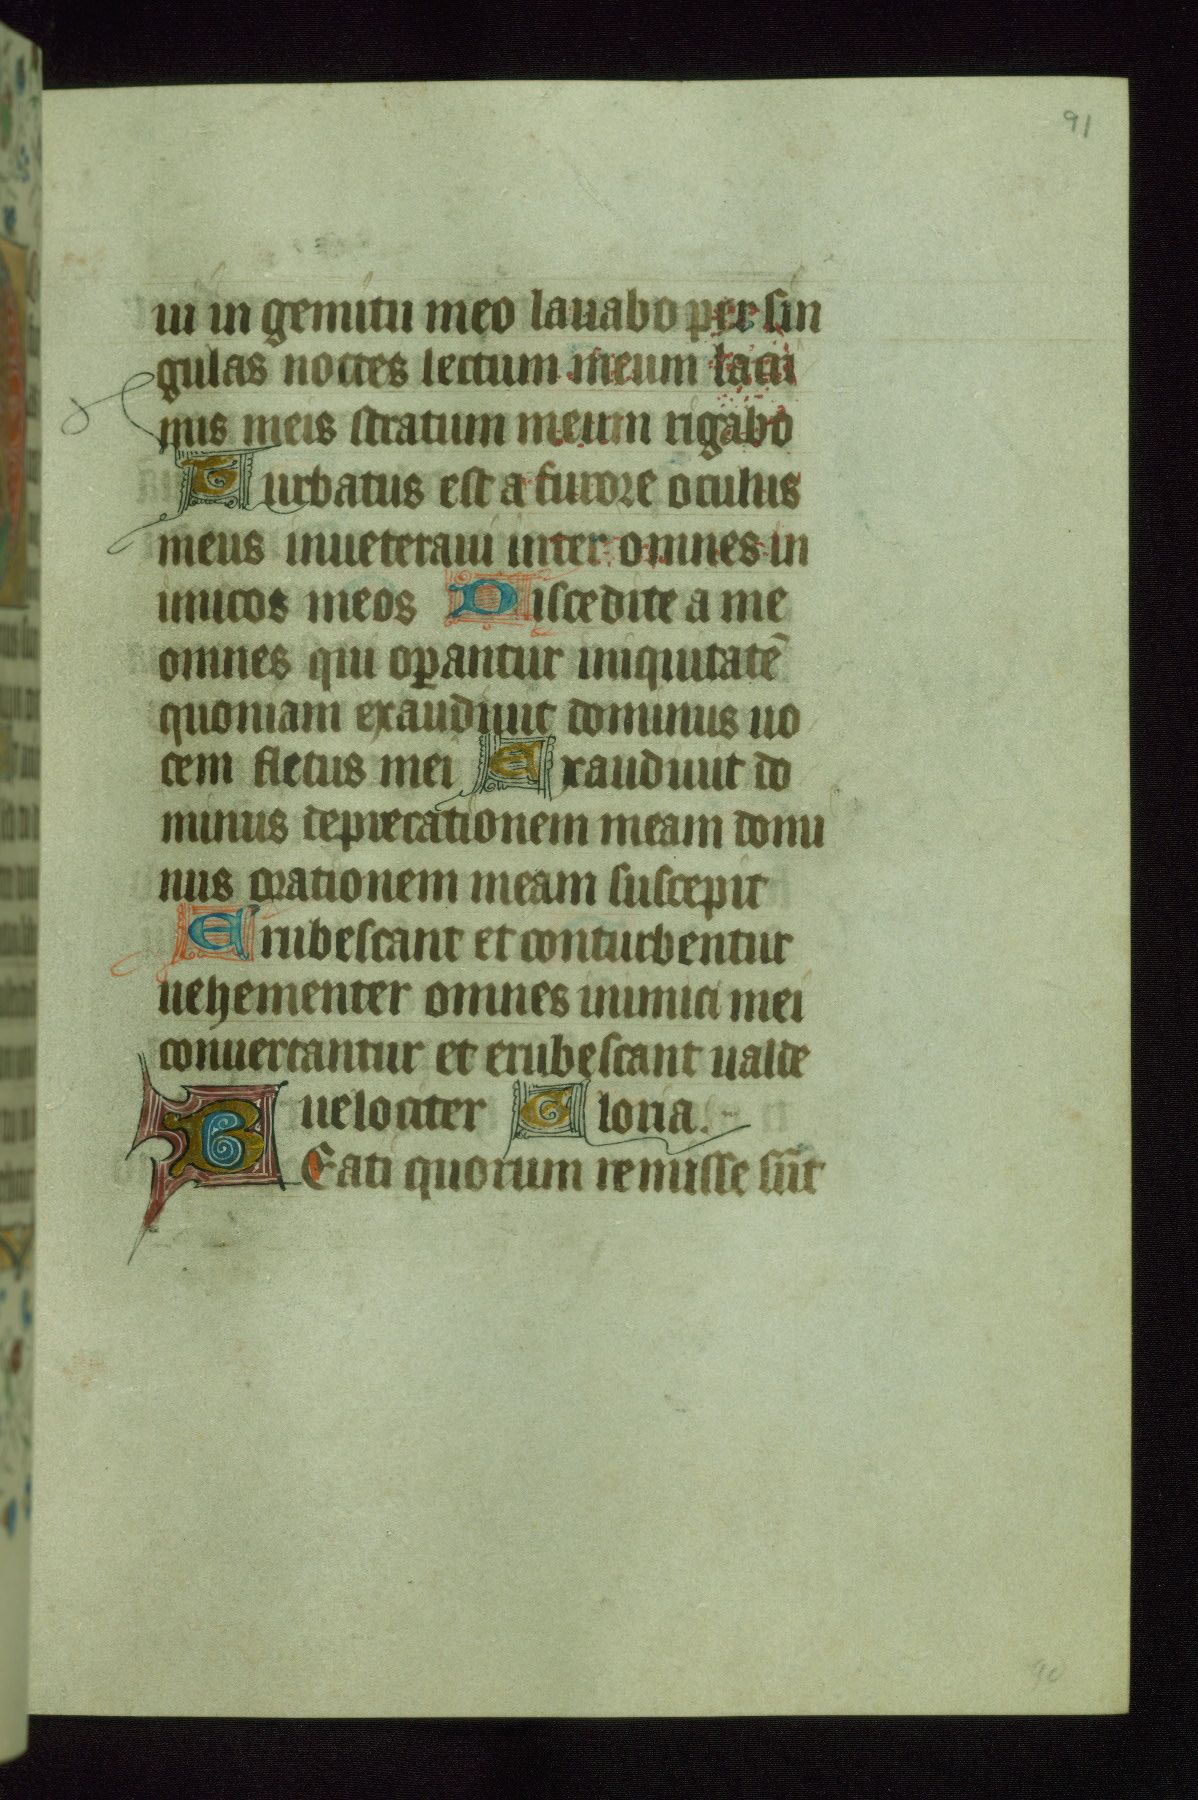 91
ui in gemitu meo lauabo per sin
gulas noctes lectum meum lacri
mis meis stratum meum rigabo
Turbatus est a furore oculus
meus inueteraui inter omnes in
imicos meos Discedite a me
omnes qui operantur iniquitatē
quoniam exaudiuit dominus uo
cem fletus mei Exaudiuit do
minus deprecationem meam domi
nus orationem meam suscepit
Erubescant et conturbentur
uehementer omnes inimici mei
conuertantur et erubescant ualde
uelociter Gloria.
BEati quorum remisse sūt
90